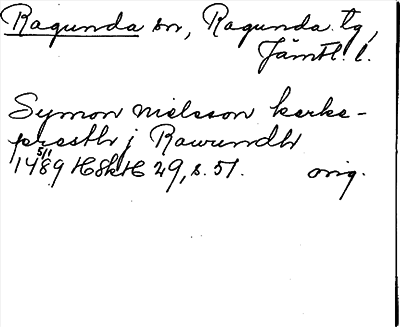 Ragunda sn, Ragunda tg,
Jämtl. l.
Symon nielsson kerke-
presth j Rawundh
1489 5/1 HSkH 29, s. 51. orig.